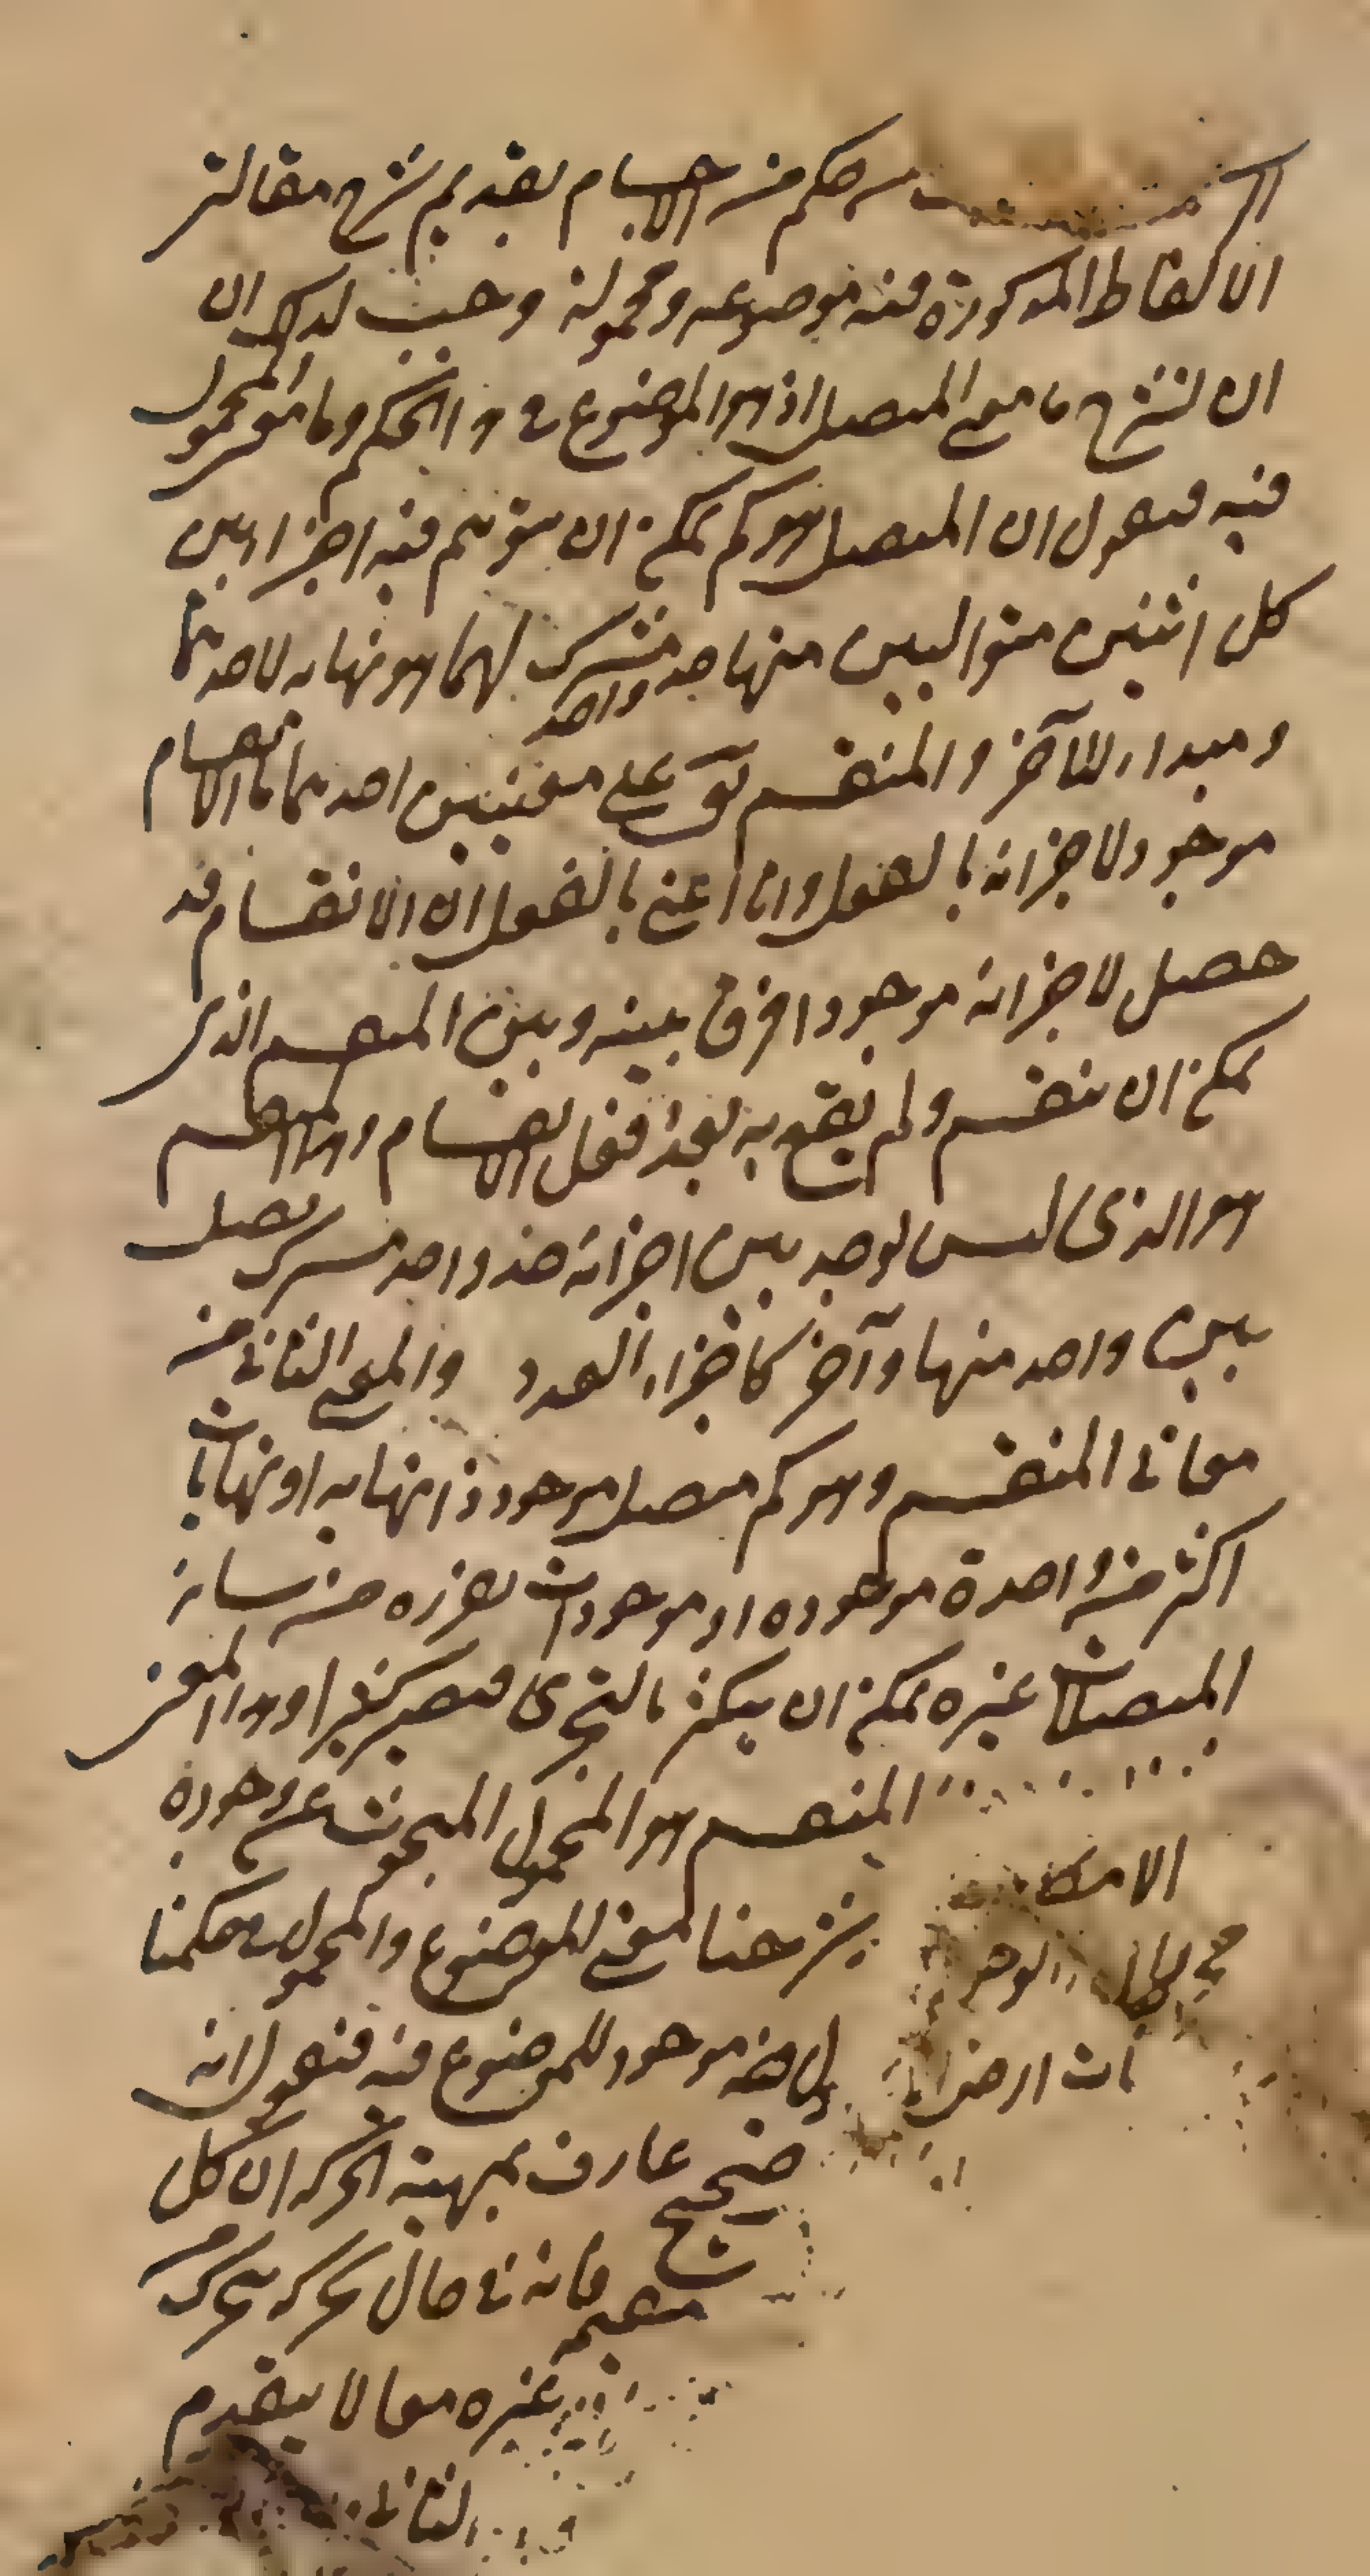 حكم من الاجسام بقديم شرح مقالتر
الالفاظ المذكورة فيه موضوعه ومحموله وجب لذلك ان
ان نشرح ما معنى المتصل اذ هو الموضوع في الحكم وما هو المحمول
فيه فنقول ان المتصل هو كم يمكن ان يتوهم فيه اجزا بين
كل اثنين متواليين منها حد واحد مشترك لهما هو نهاية لاحدهما
ومبداء للاخر والمنقسم يقع على معنيين احدهما ما الانقسام
موجود لاجزائه بالفعل وانا اعني بالفعل ان الانقسام قد
حصل لاجزائه موجودا فرق بينه وبين المنقسم الذى
يمكن ان ينقسم ولم يقع به بعد فعل الانقسام وهذا المنقسم
هو الذى ليس يوجد بين اجزائه حد واحد مشترك يصل
بين واحد منها وآخر كاجزاء العدد والمعنى الثانى من
معانى المنقسم وهو كم متصل موجود ذا نهاية او نهايات
اكثر من واحدة موجوده او موجودات تفرزه من سائر
المتصلات غيره يمكن ان يتكثر بالتجزى فيصير كثيرا وهذا المعنى
المنقسم هو المحمول المبحوث عن وجوده
الامكا
شرحنا معنى الموضوع والمحمول في حكمنا
الوجو
هذه موجود للموضوع فيه فنقول انه
ات ارضا
صحيح عارف بمهية الحركه ان كل
فانه في حال حركه يتحرك
غيره معا لا يتقدم
الثانى